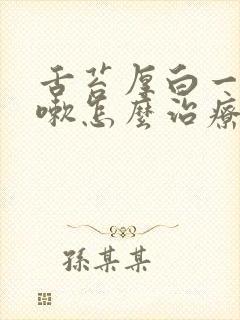 舌苔厚白一
嗽怎麼治療
孫某某